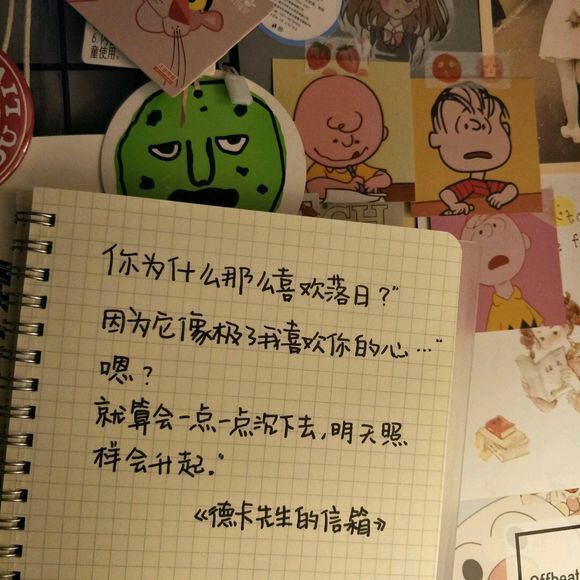 6. 内
童使用。
你为什么那么喜欢落日？”
因为它像极了我喜欢你的心…“
嗯？
就算会一点一点沉下去，明天照
样会升起。”
《德卡先生的信箱》
Offbeat